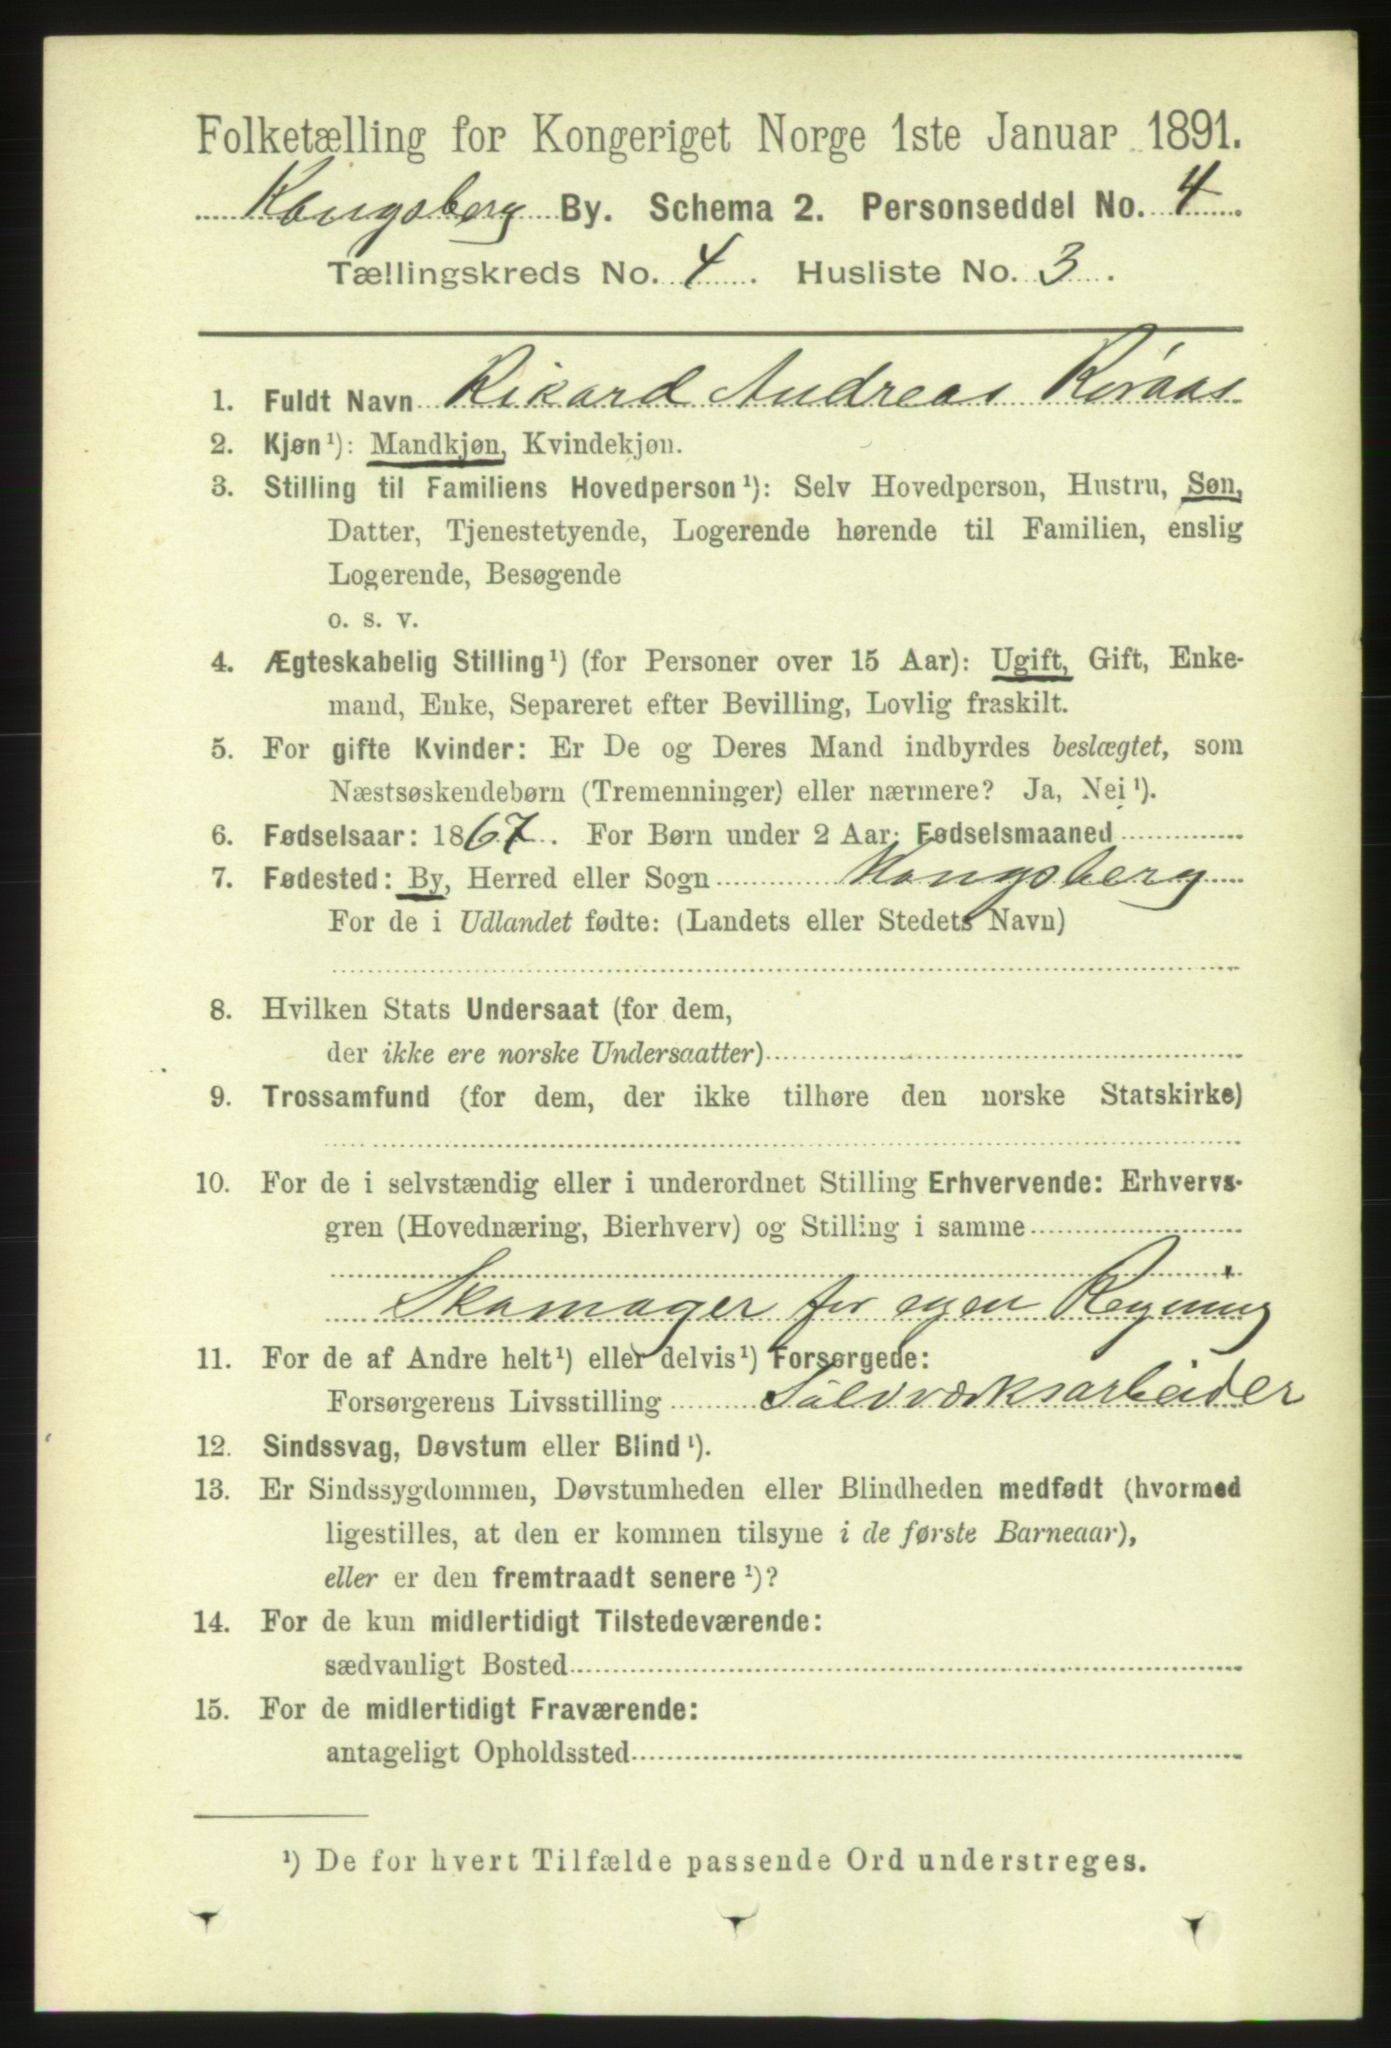 Folketælling for Kongeriget Norge 1ste Januar 1891.
Kongsberg By. Schema 2. Personseddel No. 4
Tællingskreds No. 4. Husliste No. 3.
1. Fuldt Navn Rikard Andreas Koraas
2. Kjøn¹): Mandkjøn, Kvindekjøn.
3. Stilling til Familiens Hovedperson¹): Selv Hovedperson, Hustru, Søn,
Datter, Tjenestetyende, Logerende hørende til Familien, enslig
Logerende, Besøgende
o. s. v.
4. Ægteskabelig Stilling¹) (for Personer over 15 Aar): Ugift, Gift, Enke-
mand, Enke, Separeret efter Bevilling, Lovlig fraskilt.
5. For gifte Kvinder: Er De og Deres Mand indbyrdes beslægtet, som
Næstsøskendebørn (Tremenninger) eller nærmere? Ja, Nei¹).
6. Fødselsaar: 1867. For Børn under 2 Aar: Fødselsmaaned
7. Fødested: By, Herred eller Sogn Kongsberg
For de i Udlandet fødte: (Landets eller Stedets Navn)
8. Hvilken Stats Undersaat (for dem,
der ikke ere norske Undersaatter)
9. Trossamfund (for dem, der ikke tilhøre den norske Statskirke)
10. For de i selvstændig eller i underordnet Stilling Erhvervende: Erhvervs-
gren (Hovednæring, Bierhverv) og Stilling i samme
Skomager for egen Regning
11. For de af Andre helt¹) eller delvis¹) Forsørgede:
Forsørgerens Livsstilling Sölvværksarbeider
12. Sindssvag, Døvstum eller Blind¹).
13. Er Sindssygdommen, Døvstumheden eller Blindheden medfødt (hvormed
ligestilles, at den er kommen tilsyne i de første Barneaar),
eller er den fremtraadt senere¹)?
14. For de kun midlertidigt Tilstedeværende:
sædvanligt Bosted
15. For de midlertidigt Fraværende:
antageligt Opholdssted
¹) De for hvert Tilfælde passende Ord understreges.